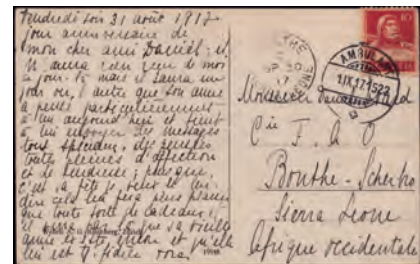 Vendredi soir 31 août 1917
jour anniversaire de
mon cher ami Daniel: il
n'aura rien reçu de moi
ce jour-là mais il saura un
jour ou l'autre que son amie
a pensé particulièrement
à lui aujourd'hui et tient
à lui envoyer des messages
tout spéciaux, des pensées
toutes pleines d'affection
et de tendresse; puisque
c'est sa fête je veux le lui
dire cela lui fera plus plaisir
que toute sorte de cadeaux,
que sa vieille
amie et qu'elle
lui est
AMBULANT
1.IX.17.1522
Monsieur
Cie F. A. O
Bonthe-Scherbro
Sierra Leone
Afrique occidentale